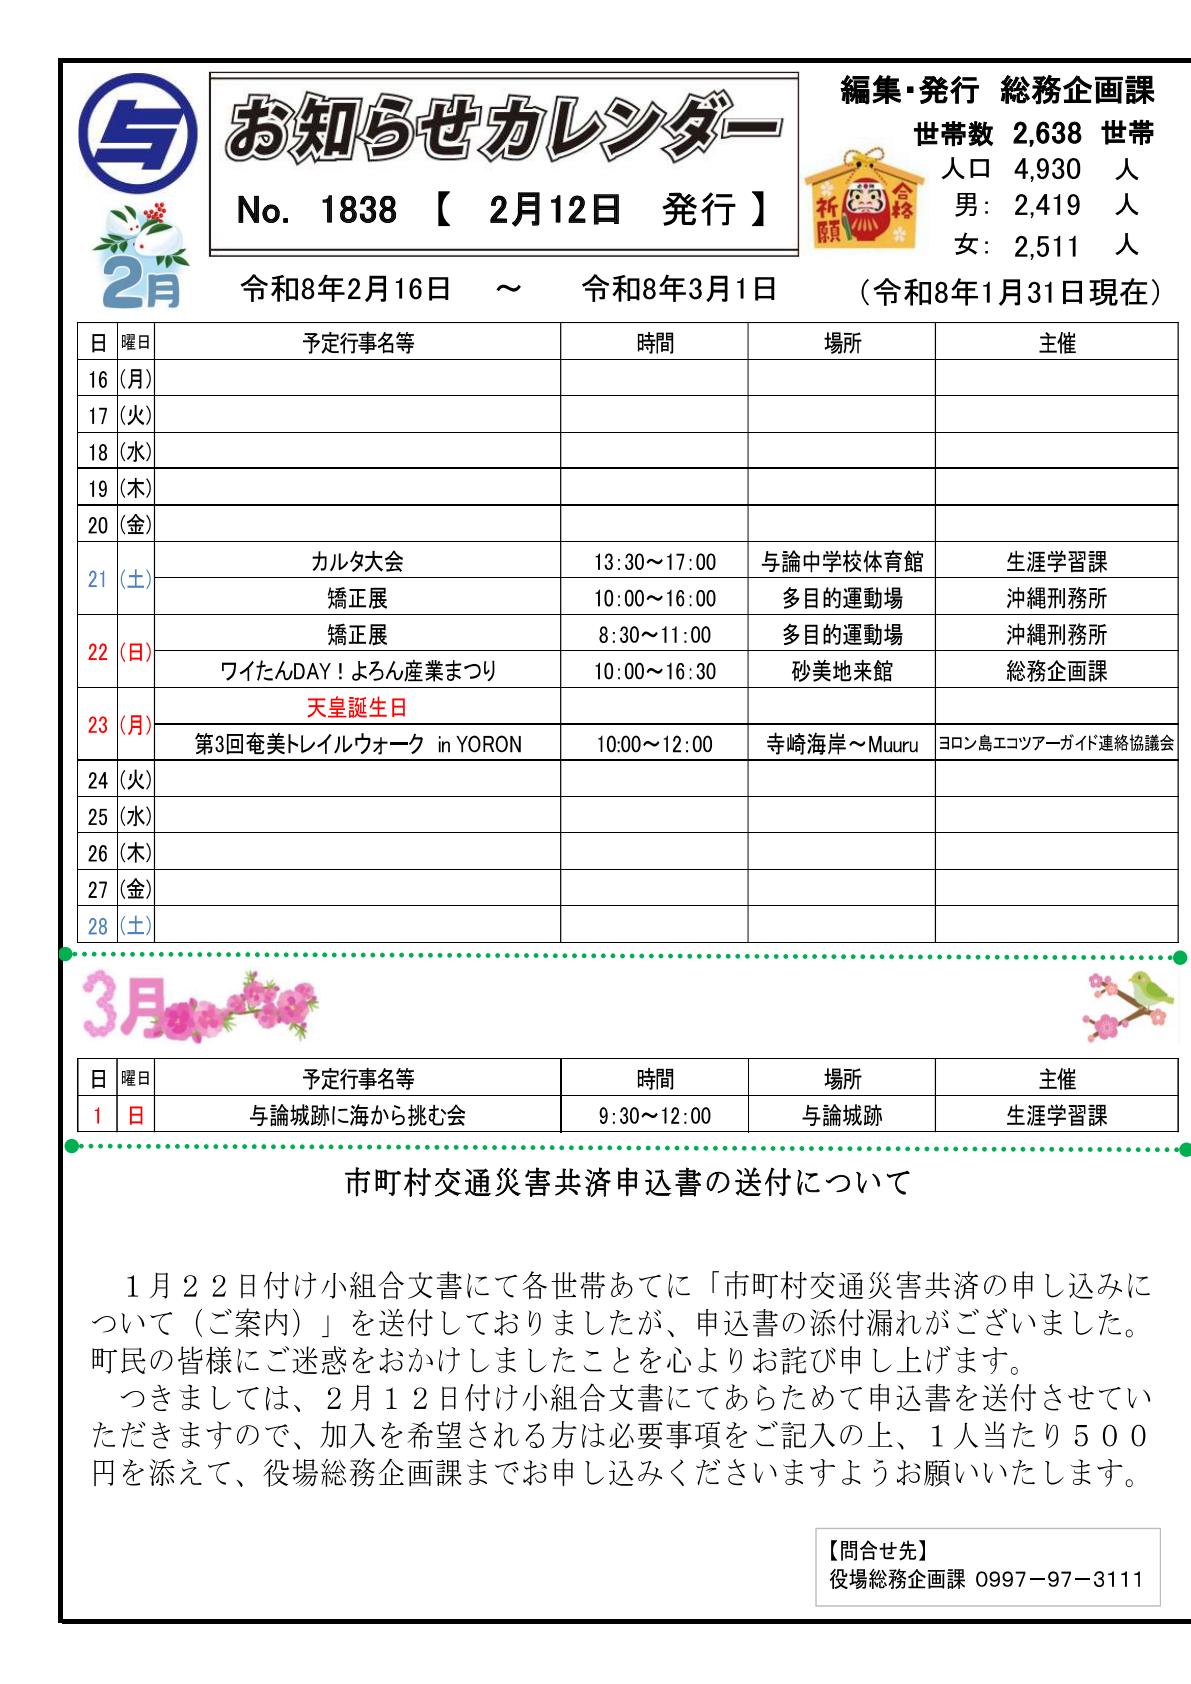 与
お知らせカレンダー
No. 1838 【 2月12日 発行 】
編集・発行 総務企画課
世帯数 2,638 世帯
人口 4,930 人
男: 2,419 人
女: 2,511 人
祈願
合格
2月
令和8年2月16日 ～ 令和8年3月1日
（令和8年1月31日現在）
日 曜日 予定行事名等 時間 場所 主催
16 (月)
17 (火)
18 (水)
19 (木)
20 (金)
21 (土) カルタ大会 13:30～17:00 与論中学校体育館 生涯学習課
矯正展 10:00～16:00 多目的運動場 沖縄刑務所
22 (日) 矯正展 8:30～11:00 多目的運動場 沖縄刑務所
ワイたんDAY！よろん産業まつり 10:00～16:30 砂美地来館 総務企画課
23 (月) 天皇誕生日
第3回奄美トレイルウォーク in YORON 10:00～12:00 寺崎海岸～Muuru ヨロン島エコツアーガイド連絡協議会
24 (火)
25 (水)
26 (木)
27 (金)
28 (土)
3月
日 曜日 予定行事名等 時間 場所 主催
1 日 与論城跡に海から挑む会 9:30～12:00 与論城跡 生涯学習課
市町村交通災害共済申込書の送付について
１月２２日付け小組合文書にて各世帯あてに「市町村交通災害共済の申し込みに
ついて（ご案内）」を送付しておりましたが、申込書の添付漏れがございました。
町民の皆様にご迷惑をおかけしましたことを心よりお詫び申し上げます。
つきましては、２月１２日付け小組合文書にてあらためて申込書を送付させてい
ただきますので、加入を希望される方は必要事項をご記入の上、１人当たり５００
円を添えて、役場総務企画課までお申し込みくださいますようお願いいたします。
【問合せ先】
役場総務企画課 0997－97－3111